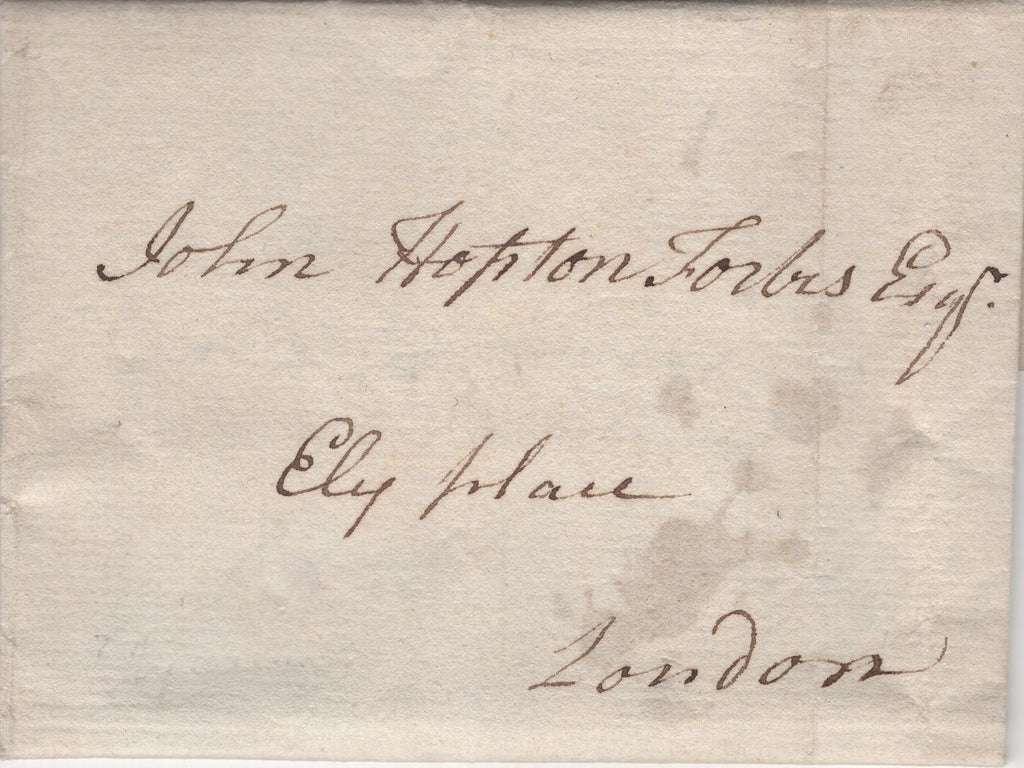 John Hopton Forbes Esqr.
Ely place
London